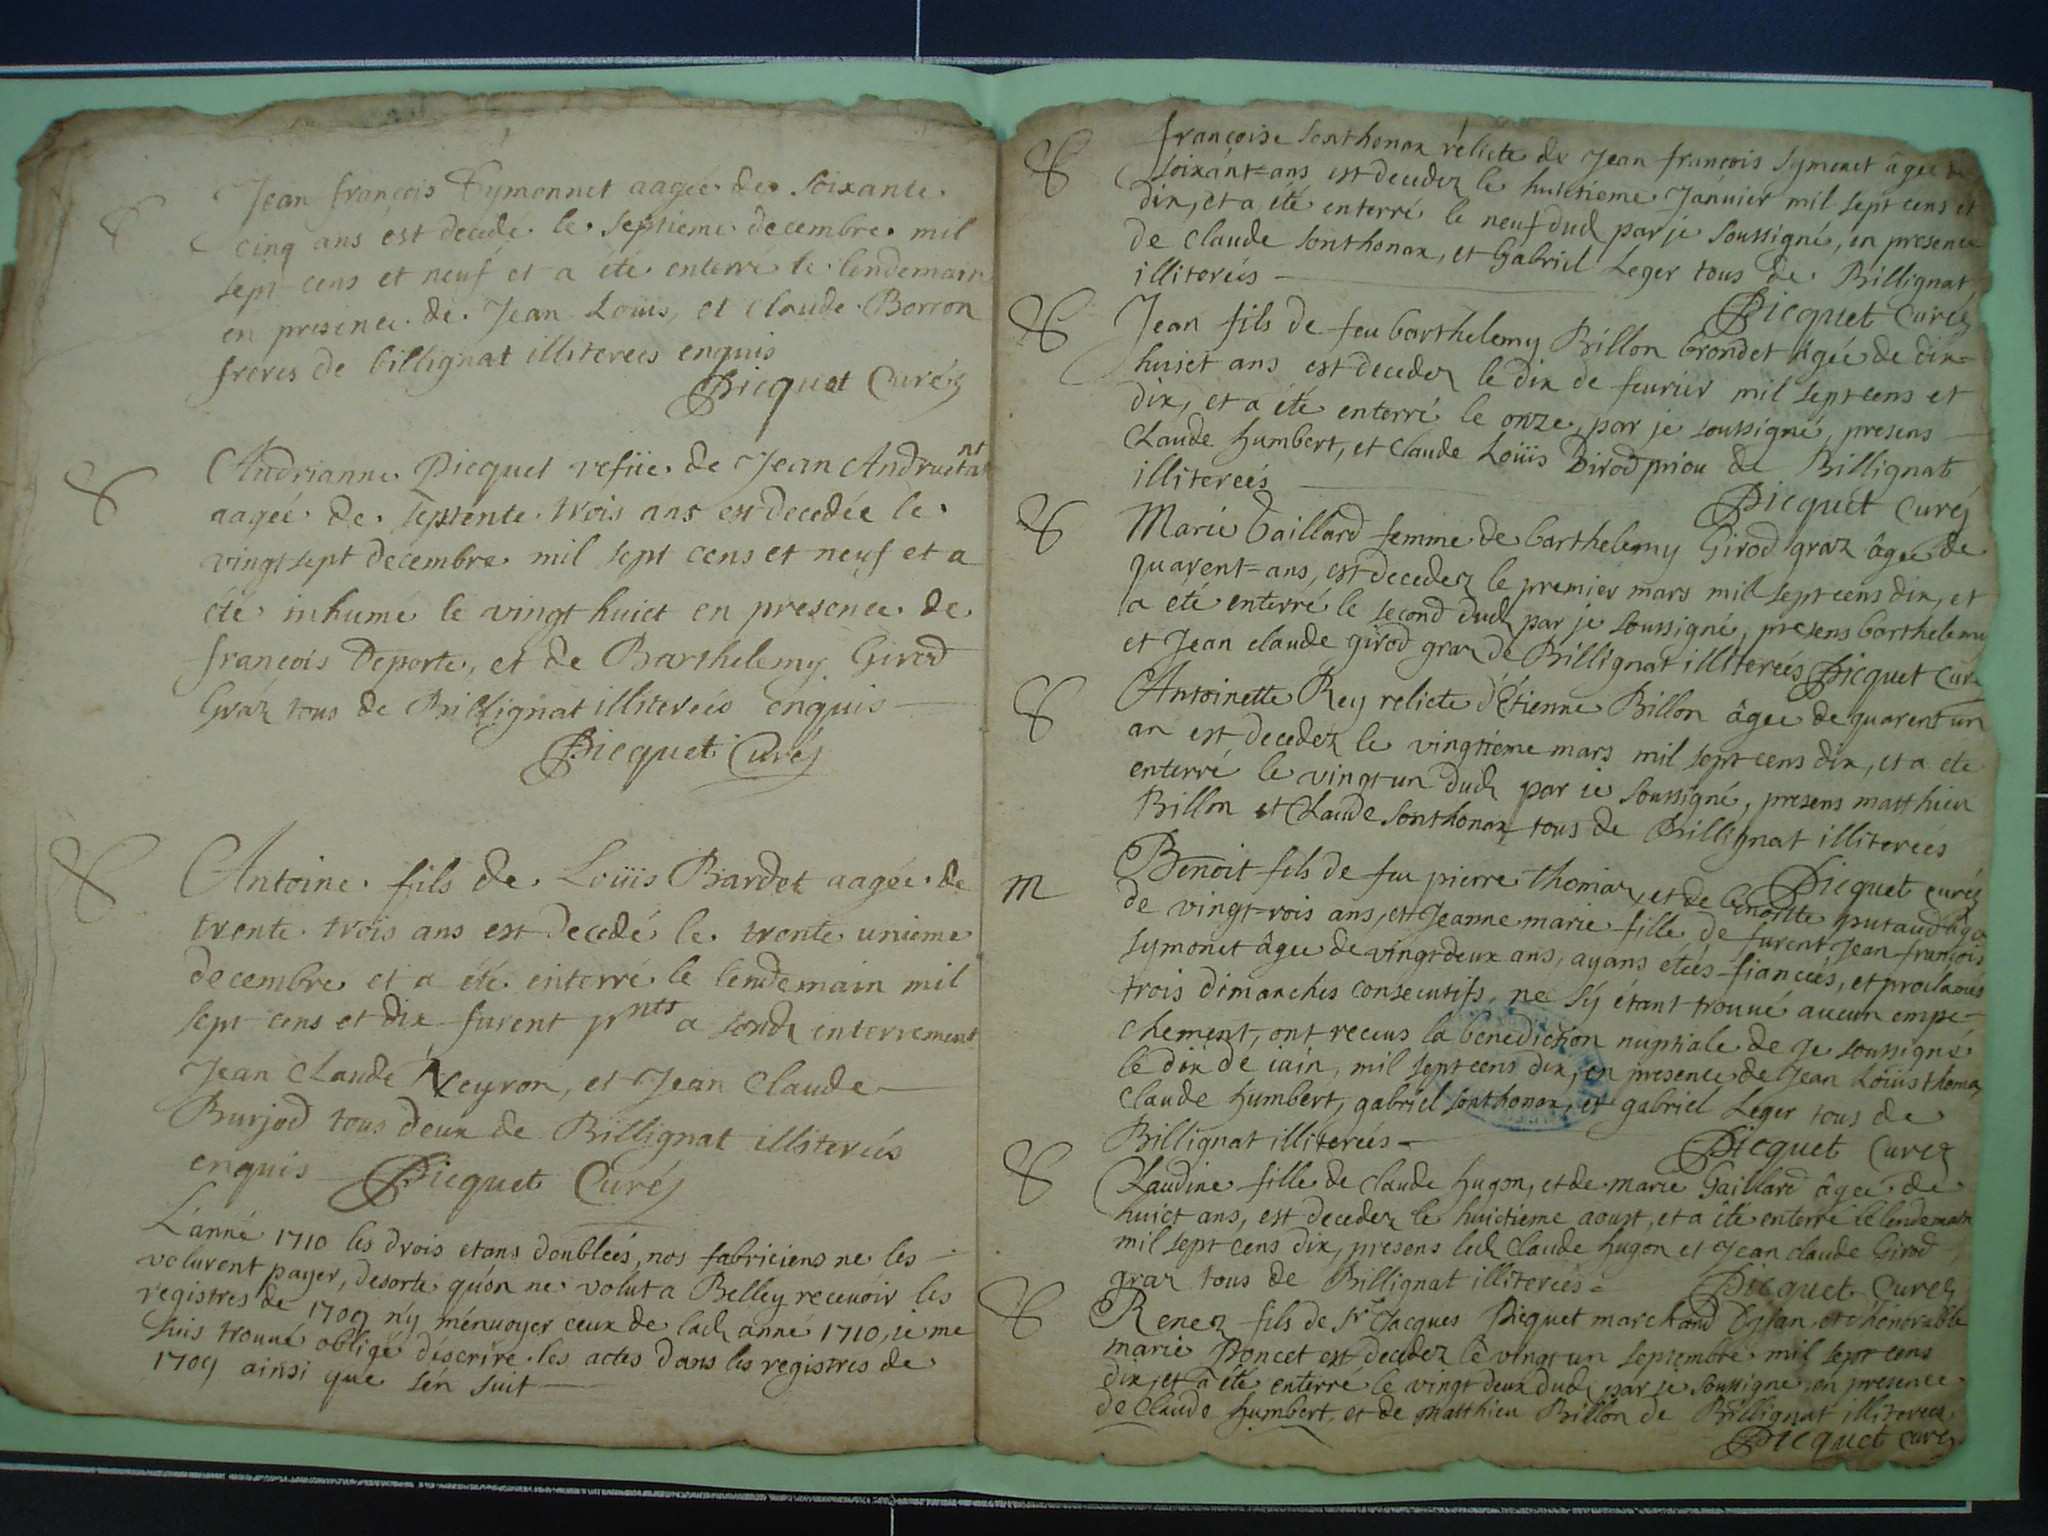 Jean françois Symonnet aagée de soixante
cinq ans est decedé le septieme decembre mil
sept cens et neuf et a été enterré le lendemain
en presence de Jean Loüis, et Claude Borron
freres de billignat illiterées enquis
Picquet Curéz
Andrianne Picquet vefüe de Jean Andruetan
aagée de septente trois ans est decedée le
vingt sept decembre mil sept cens et neuf et a
été inhumé le vingt huict en presence de
françois Deporte, et de Barthelemy Girod
Graz tous de Billignat illiterées enquis
Picquet Curéz
Antoine fils de Loüis Bardet aagée de
trente trois ans est decedé le trente unieme
decembre et a été enterré le lendemain mil
sept cens et dix furent pnts a sondt enterrement
Jean Claude Neyron, et Jean Claude
Burjod tous deux de Billignat illiterées
enquis Picquet Curéz
L'anné 1710 les drois etans doubleés, nos fabriciens ne les
volurent payer, desorte qu'on ne volut a Belley recevoir les
registres de 1709 n'y m'énvoyer ceux de ladt anné 1710, je me
suis trouvé obligé d'éscrire les actes dans les registres de
1709 ainsi que s'én suit
françoise Sonthonax relicte de Jean françois Symonet âgée de
soixant=ans est decedez le huictieme Janvier mil sept cens et
dix, et a été enterré le neuf dud par je soussigné, en presence
de Claude Sonthonax, et Gabriel Leger tous de Billignat
illitereés
Picquet Curéz
Jean fils de feu barthelemy Billon brondet âgée de dix=
huict ans est decedez le dix de fevrier mil sept cens et
dix, et a été enterré le onze, par je soussigné, presens
Claude humbert, et Claude Loüis Birod priou de Billignat
illitereés
Picquet Curéz
Marie Gaillard femme de barthelemy Girod graz âgée de
quarent=ans, est decedez le premier mars mil sept cens dix, et
a eté enterré le second dud par je soussigné, presens barthelemy
et Jean claude girod graz de Billignat illitereés Picquet Curéz
Antoinette Rey relicte d'Étienne Billon âgée de quarent un
an est decedez le vingtieme mars mil sept cens dix, et a eté
enterré le vingt un dud par je soussigné, presens matthieu
Billon et Claude Sonthonax tous de Billignat illitereés
Picquet curéz
Benoit fils de feu pierre thomaz, et de benoitte putaud âgé
de vingt=rois ans, et Jeanne marie fille de furent Jean françois
Symonet âgée de vingt deux ans, ayans éteés fianceés, et proclameés
trois dimanches consecutifs, ne s'ÿ étant trouvé aucun empe-
chement, ont recius la benediction nuptiale de je soussigné
le dix de iuin, mil sept cens dix, en presence de Jean Loüis thomaz
Claude humbert, gabriel Sonthonax, et gabriel Leger tous de
Billignat illitereés
Picquet Curéz
Claudine fille de Claude hugon, et de marie Gaillard âgée de
huict ans, est decedez le huictieme aoust, et a été enterré le lendemain
mil sept cens dix, presens led Claude hugon et Jean claude Girod
graz tous de Billignat illitereés
Picquet Curéz
Renez fils de Sr Jacques Picquet marchand et d'hénorable
marie Poncet est decedez le vingt un septembre mil sept cens
dix, et a été enterré le vingt deux dud par je soussigné en presence
de Claude humbert, et de matthieu Billon de Billignat illitereés
Picquet Curéz